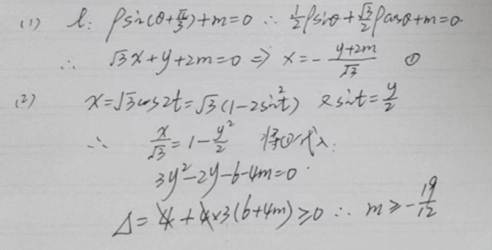 (1) l: ρsin(θ+π/3)+m=0 ∴ 1/2ρsinθ+√3/2ρcosθ+m=0
∴ √3x+y+2m=0 ⇒ x=-(y+2m)/√3 ①
(2) x=√3cos2t=√3(1-2sin²t) 又sint=y/2
∴ x/√3=1-y²/2 将①代入:
3y²-2y-6-4m=0.
Δ=4+4×3(6+4m)≥0 ∴ m≥-19/12